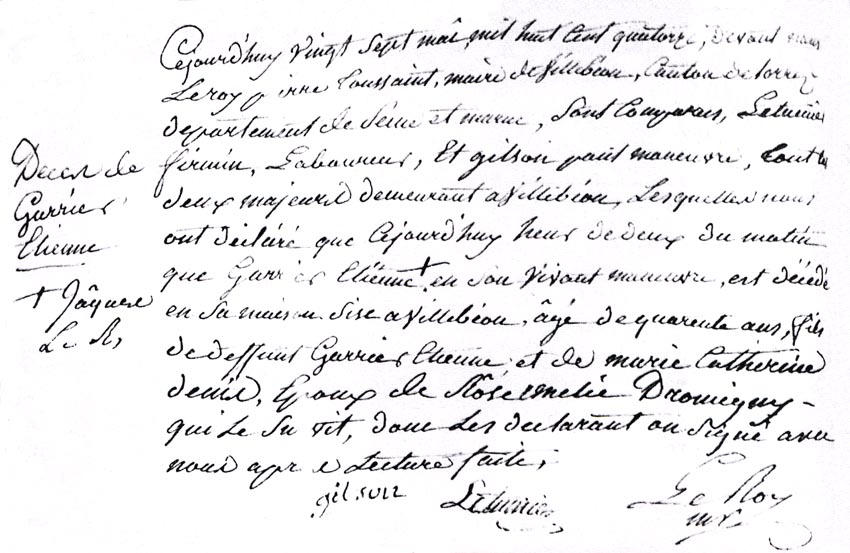 Cejourd'huy vingt sept mai, mil huit cent quatorze, devant nous
Leroy pierre toussaint, maire de Villebéon, Canton de lorrez
departement de seine et marne, sont Comparus, Letumier
firmin, Laboureur, Et gilson paul maneuvre, tout les
deux majeurs demeurant a Villibéon, Lesquelles nous
ont déclaré que Cejourd'huy heur de deux du matin
que Garrier Etienne + en son vivant maneuvre, est décédé
en sa maison sise a Villibéon, âgé de quarente ans, fils
de deffunt Garrier Etienne, et de marie Catherine
denis, Epoux de Rôse Dromigny -
qui Le survit, donc Les declarant on Signé avec
nous apre Lecture faite;
Deces de
Garrier
Etienne
+ Jâques
Le R,
gilson
Letumier
Le Roy